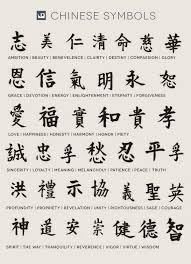 CHINESE SYMBOLS
志 美 仁 清 命 慈 華
AMBITION | BEAUTY | BENEVOLENCE | CLARITY | DESTINY | COMPASSION | GLORY
恩 信 氣 明 永 恕
GRACE | DEVOTION | ENERGY | ENLIGHTENMENT | ETERNITY | FORGIVENESS
愛 福 實 和 貴 孝
LOVE | HAPPINESS | HONESTY | HARMONY | HONOR | PIETY
誠 忠 忍 平 孚
SINCERITY | LOYALTY | MEANING | MELANCHOLY | PATIENCE | PEACE | TRUST
洪 禮 示 協 義 聖 英
PROFUNDITY | PROPRIETY | REVELATION | UNITY | RIGHTEOUSNESS | SAGE | COURAGE
道 安 崇 健 德 智
SPIRIT | THE WAY | TRANQUILITY | REVERENCE | VIGOR | VIRTUE | WISDOM